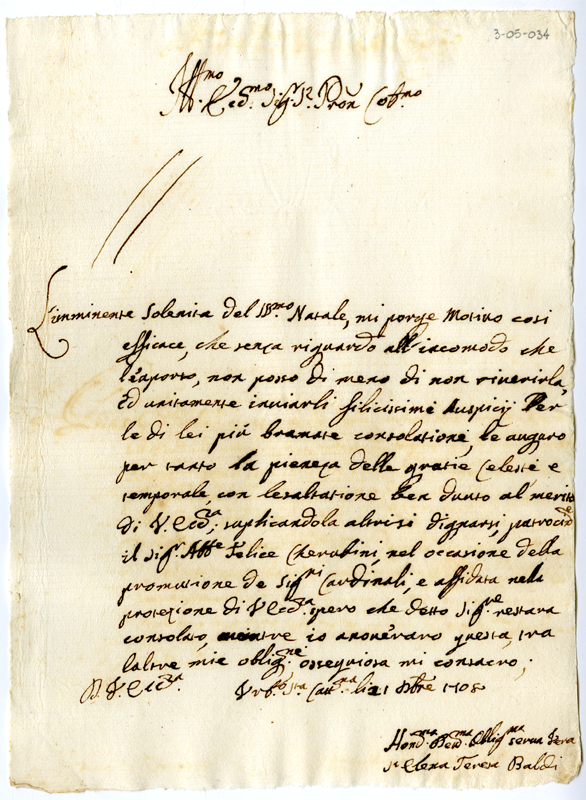 3-05-034
Ill.mo
Ecc.mo Sig.r Pron Col.mo
L'imminente Solenità del SS.mo Natale, mi porge Motiuo così
efficace, che senza riguardo all'incomodo che
l'è aporto, non posso di meno di non riuerirla,
Ed unitamente inuiarli filicissimi Auspicij Per
le di lei più bramate consolatione, le auguro
per tanto la pieneza delle gratie Celeste e
temporale, con lesaltatione ben douto al merito
di V. Ecc.a; suplicandola altresì dignarsi, patrocin
il Sig.r Abb.e Felice Cherubini, nel occasione della
promutione de Sig.ri Cardinali, e affidata nella
protezione di V Ecc.a spero che detto Sig.re restarà
consolato, mentre io anouerarò questa, tra
laltre mie oblig.ne ossequiosa mi consacro;
D. V. Ecc.a li 21 Xbre 1708
Hum.ma Deu.ma Oblig.ma serua Vera
Sr Elena Teresa Baldi